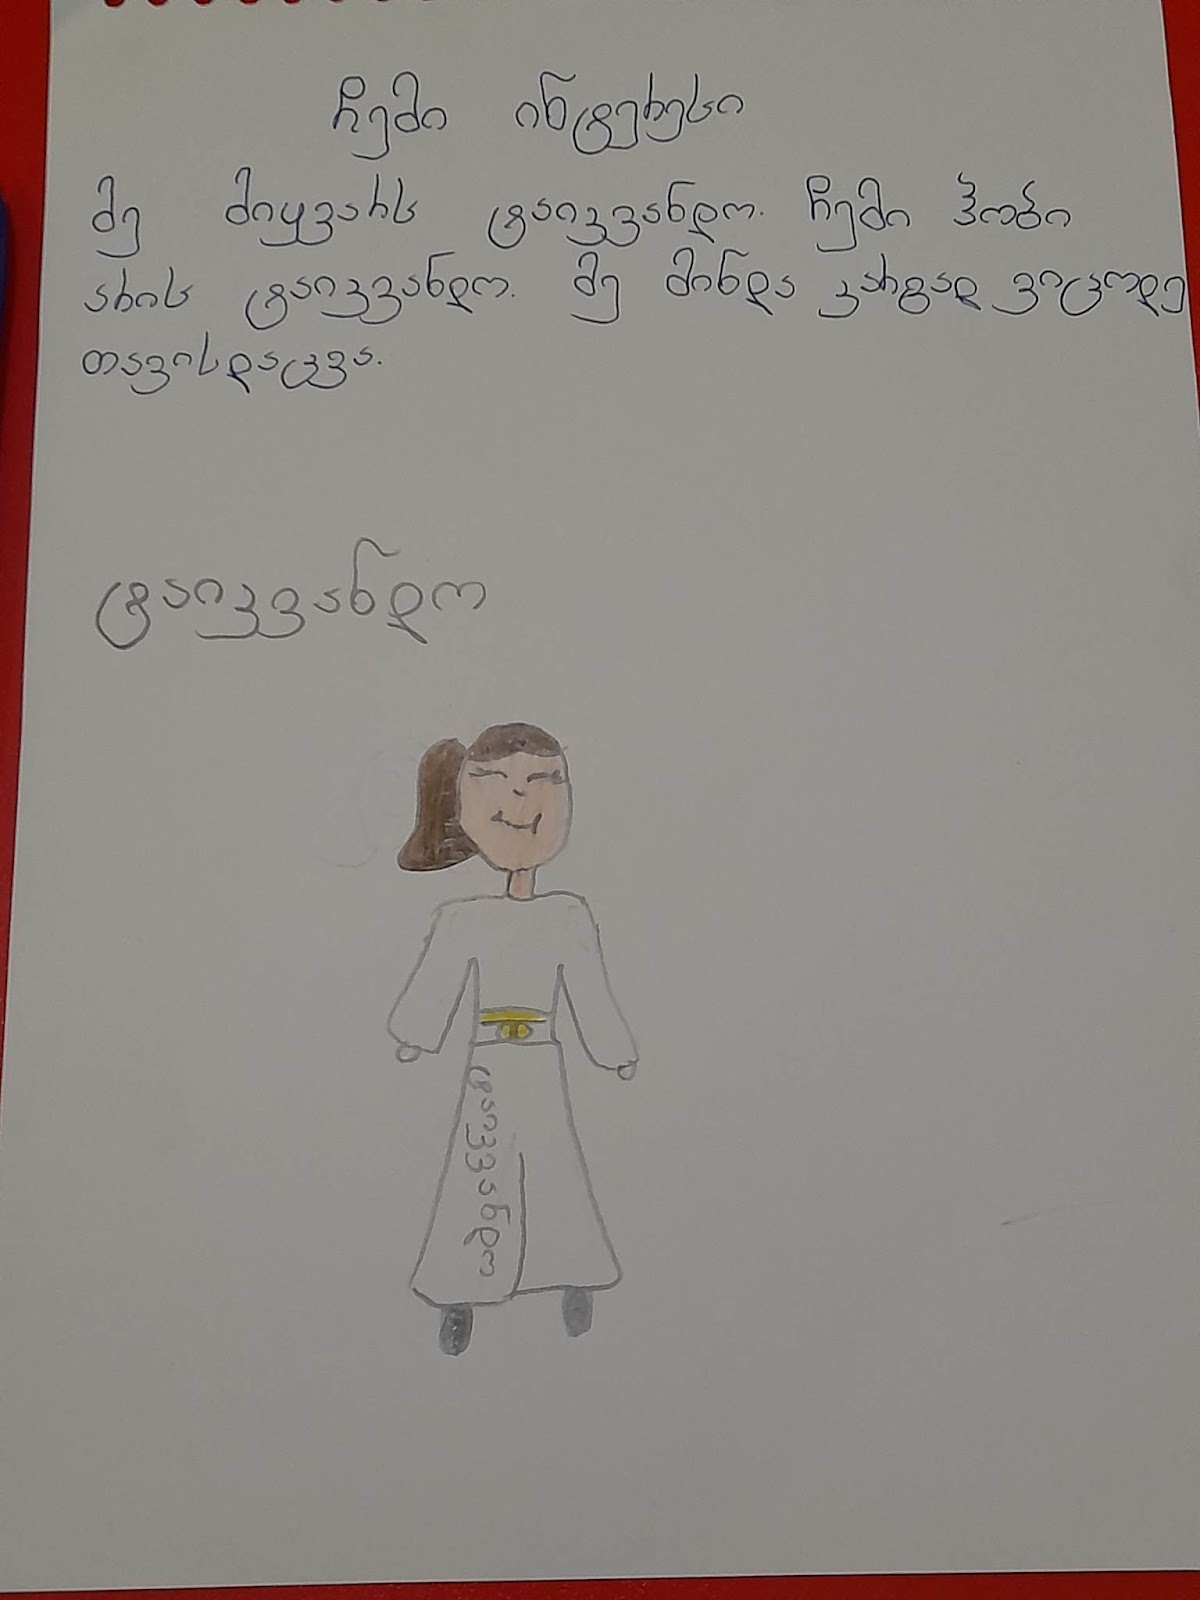 ჩემი ინტერესი
მე მიყვარს ტაიკვანდო. ჩემი ჰობი
არის ტაიკვანდო. მე მინდა კარგად ვიცოდე
თავისდაცვა.
ტაიკვანდო
ტაიკვანდო